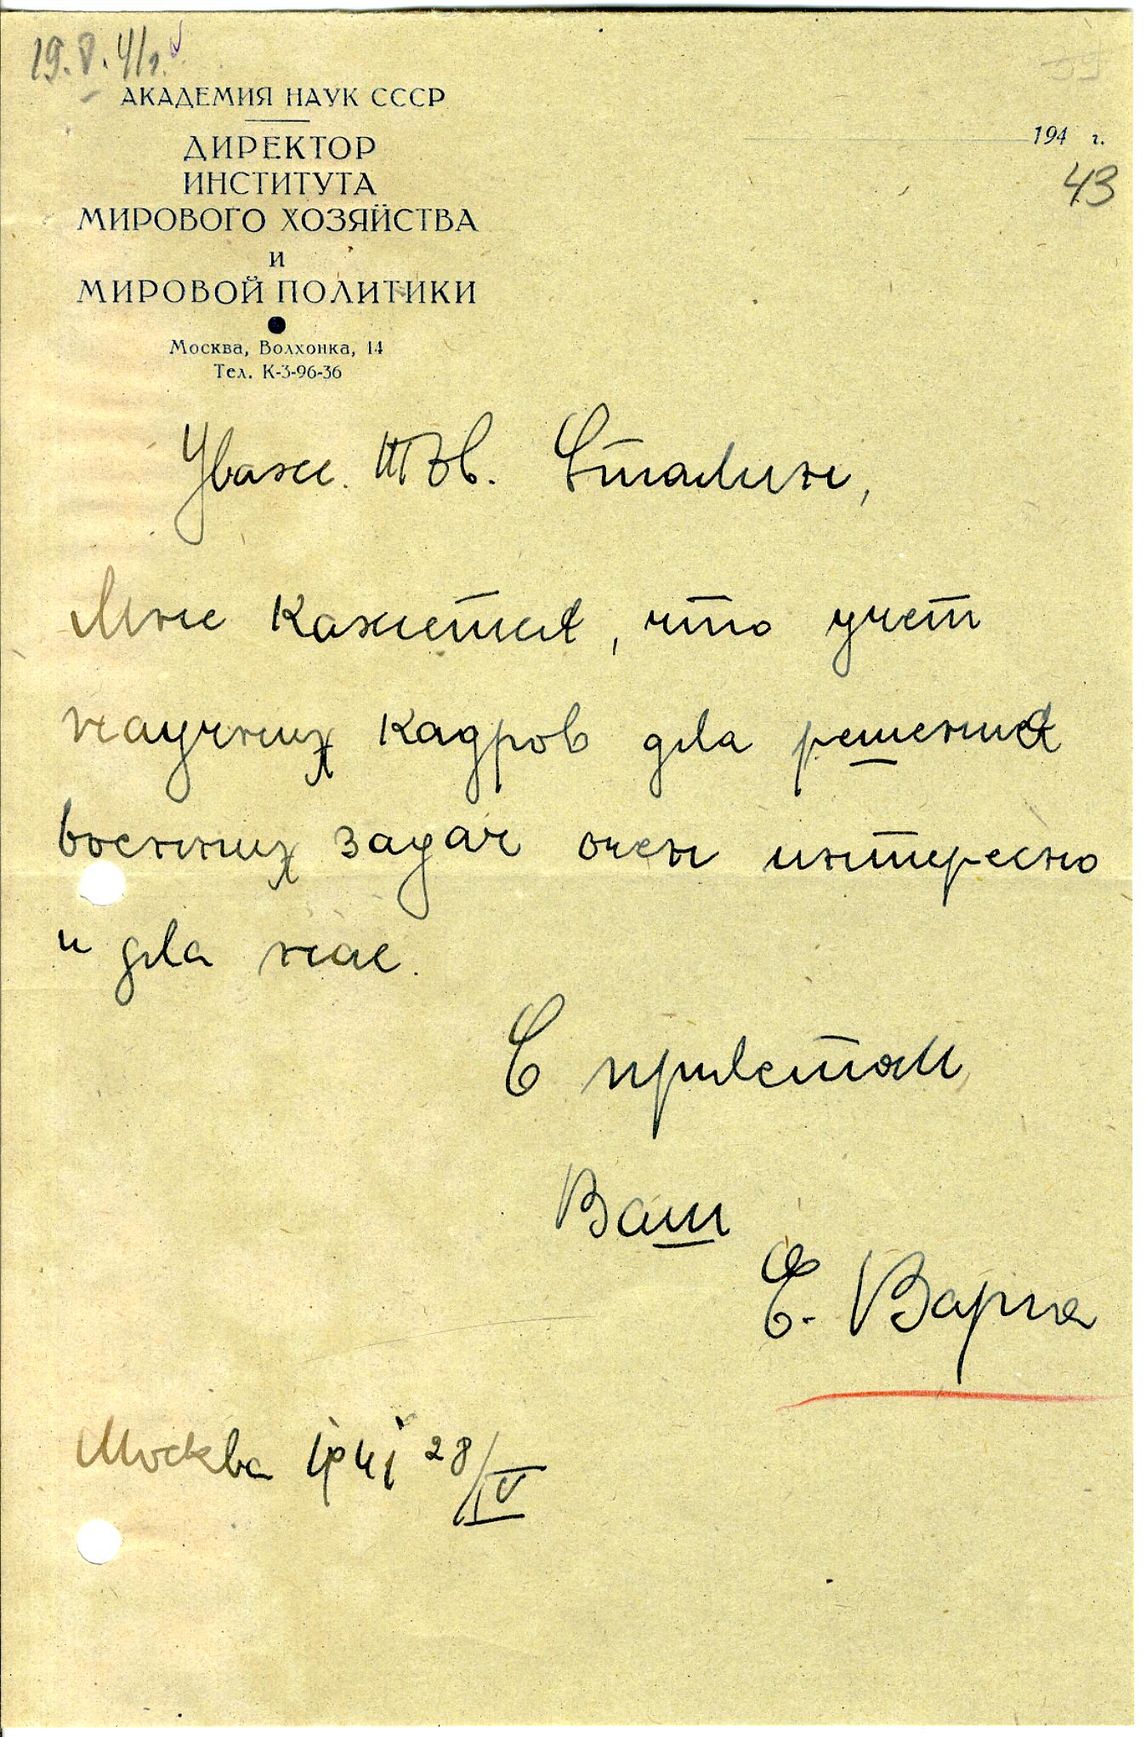 19.V.41г.
АКАДЕМИЯ НАУК СССР
ДИРЕКТОР
ИНСТИТУТА
МИРОВОГО ХОЗЯЙСТВА
И
МИРОВОЙ ПОЛИТИКИ
Москва, Волхонка, 14
Тел. К-3-96-36
194 г.
43
Уваж. тов. Сталин,
Мне кажется, что учет
научних кадров для решения
военних задач очен интересно
и для нас.
С приветом
Ваш
Е. Варга
Москва 1941 28/IV